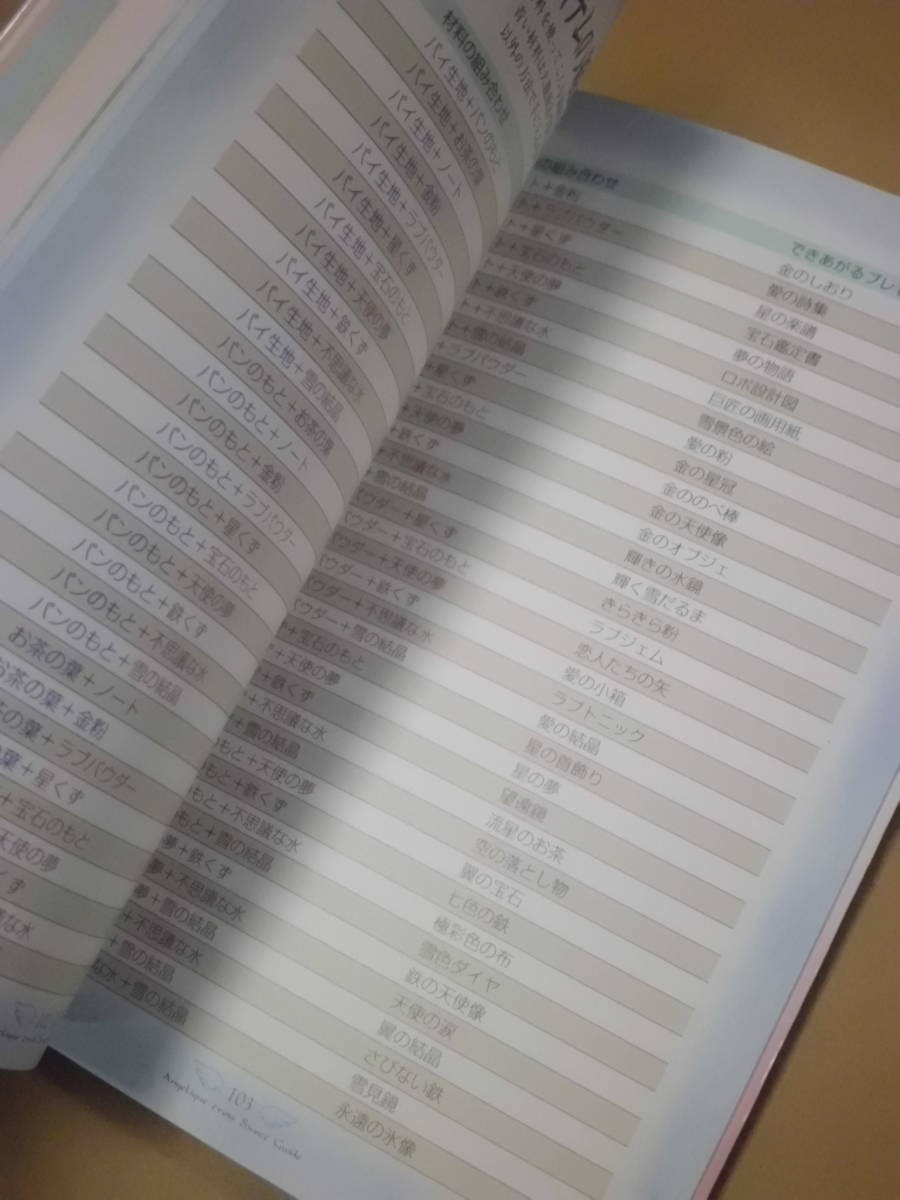 材料の組み合わせ
パイ生地＋パンのもと
パイ生地＋お茶の葉
パイ生地＋ノート
パイ生地＋金粉
パイ生地＋ラブパウダー
パイ生地＋星くず
パイ生地＋宝石のもと
パイ生地＋天使の夢
パイ生地＋鉄くず
パイ生地＋不思議な水
パイ生地＋雪の結晶
パンのもと＋お茶の葉
パンのもと＋ノート
パンのもと＋金粉
パンのもと＋ラブパウダー
パンのもと＋星くず
パンのもと＋宝石のもと
パンのもと＋天使の夢
パンのもと＋鉄くず
パンのもと＋不思議な水
パンのもと＋雪の結晶
お茶の葉＋ノート
お茶の葉＋金粉
の葉＋ラブパウダー
葉＋星くず
＋宝石のもと
天使の夢
くず
議な水
の組み合わせ できあがるプレゼ
ト＋金粉 金のしおり
ト＋ラブパウダー 愛の詩集
＋星くず 星の楽譜
ト＋宝石のもと 宝石鑑定書
ト＋天使の夢 夢の物語
ト＋鉄くず ロボ設計図
＋不思議な水 巨匠の画用紙
ト＋雪の結晶 雪景色の絵
ラブパウダー 愛の粉
＋星くず 金の星冠
＋宝石のもと 金ののべ棒
＋天使の夢 金の天使像
＋鉄くず 金のオブジェ
＋不思議な水 輝きの水鏡
雪の結晶 輝く雪だるま
パウダー＋星くず きらきら粉
パウダー＋宝石のもと ラブジェム
パウダー＋天使の夢 恋人たちの矢
パウダー＋鉄くず 愛の小箱
パウダー＋不思議な水 ラブトニック
パウダー＋雪の結晶 愛の結晶
＋宝石のもと 星の首飾り
＋天使の夢 星の夢
＋鉄くず 望遠鏡
＋不思議な水 流星のお茶
＋雪の結晶 空の落とし物
もと＋天使の夢 翼の宝石
もと＋鉄くず 七色の鉄
もと＋不思議な水 極彩色の布
もと＋雪の結晶 雪色ダイヤ
夢＋鉄くず 鉄の天使像
夢＋不思議な水 天使の涙
夢＋雪の結晶 翼の結晶
＋不思議な水 さびない鉄
＋雪の結晶 雪見鏡
な水＋雪の結晶 永遠の氷像
103
Angelique cross Sweet Guide